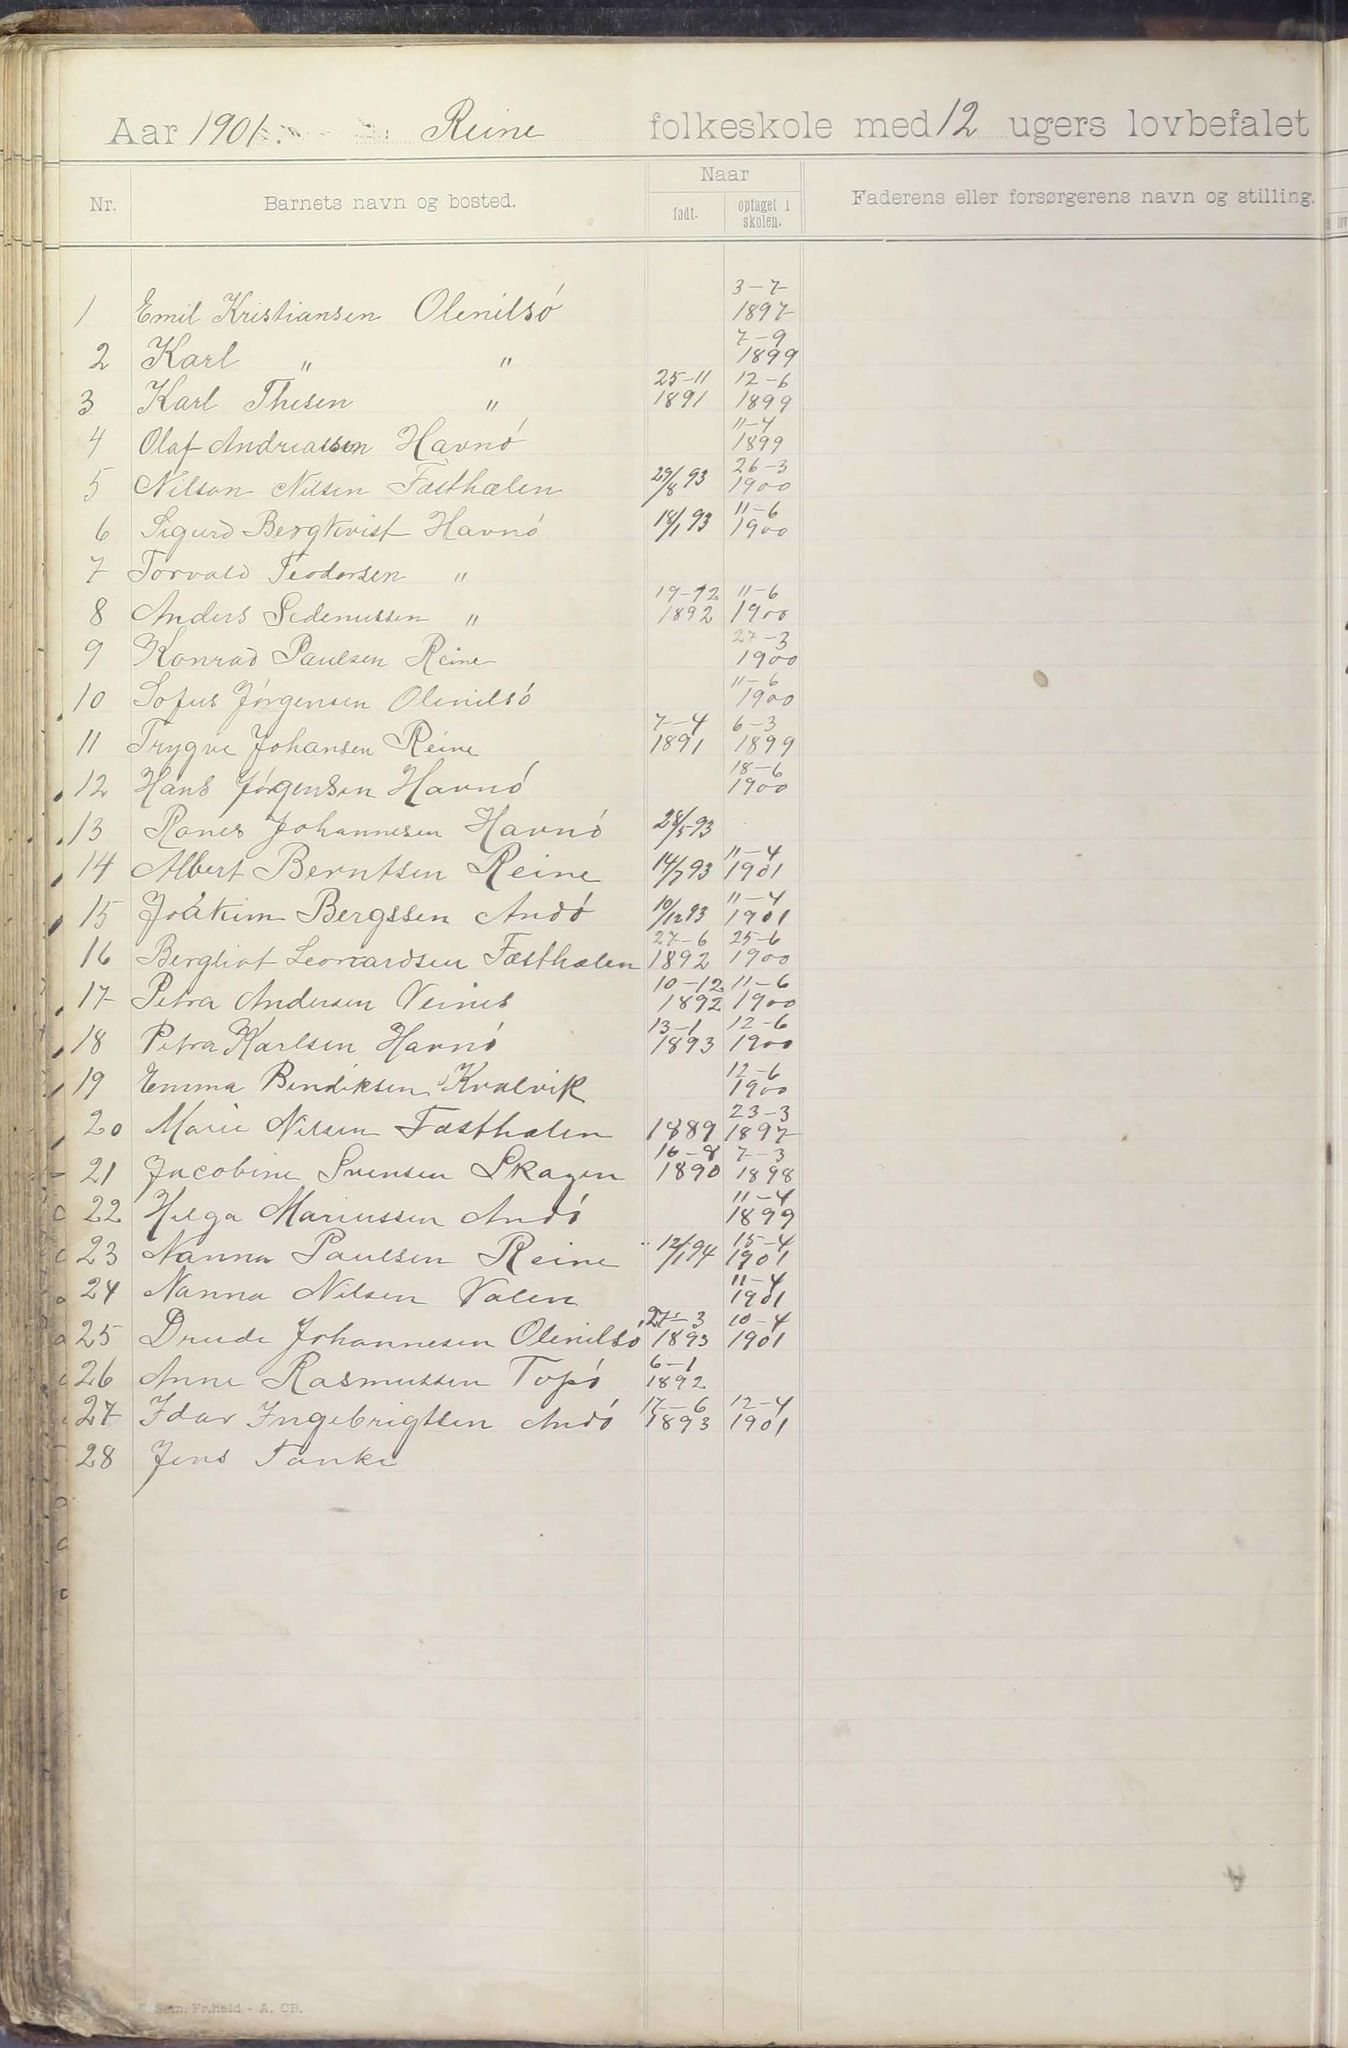 Aar 1901. Reine folkeskole med 12 ugers lovbefalet
Nr. Barnets navn og bosted. Naar Faderens eller forsørgerens navn og stilling.
født. optaget i skolen.
1 Emil Kristiansen Olenilsö 3-7 1897
2 Karl " " 7-9 1899
3 Karl Thesen " 25-11 1891 12-6 1899
4 Olaf Andreassen Havnö 11-4 1899
5 Nilson Nilsen Fæsthælen 29/8 93 26-3 1900
6 Sigurd Bergkvist Havnö 18/1 93 11-6 1900
7 Torvald Teodorsen "
8 Anders Sedenussen " 19-12 1892 11-6 1900
9 Konrad Paulsen Reine 27-3 1900
10 Sofus Jörgensen Olenilsö 11-6 1900
11 Trygve Johansen Reine 7-4 1891 6-3 1899
12 Hans Jörgensen Havnö 18-6 1900
13 Johannesen Havnö 28/5-93
14 Albert Berntsen Reine 14/7 93 11-4 1901
15 Joakim Bergssen Andö 10/12 93 11-4 1901
16 Bergliot Leonardsen Fæsthælen 27-6 1892 25-6 1900
17 Petra Andersen Veines 10-12 1892 11-6 1900
18 Petra Karlsen Havnö 13-1 1893 12-6 1900
19 Emma Bendiksen Kvalvik 12-6 1900
20 Marie Nilsen Fæsthælen 1889 23-3 1897
21 Jacobine Svensen Skagen 16-8 1890 7-3 1898
22 Helga Mariussen Andö 11-4 1899
23 Nanna Paulsen Reine 12/1 94 15-4 1901
24 Nanna Nilsen Valen 11-4 1901
25 Drude Johannesen Olenilsö 27-3 1893 10-4 1901
26 Anne Rasmussen Topö 6-1 1892
27 Idar Ingebrigtsen Andö 17-6 1893 12-4 1901
28 Jens Tanke